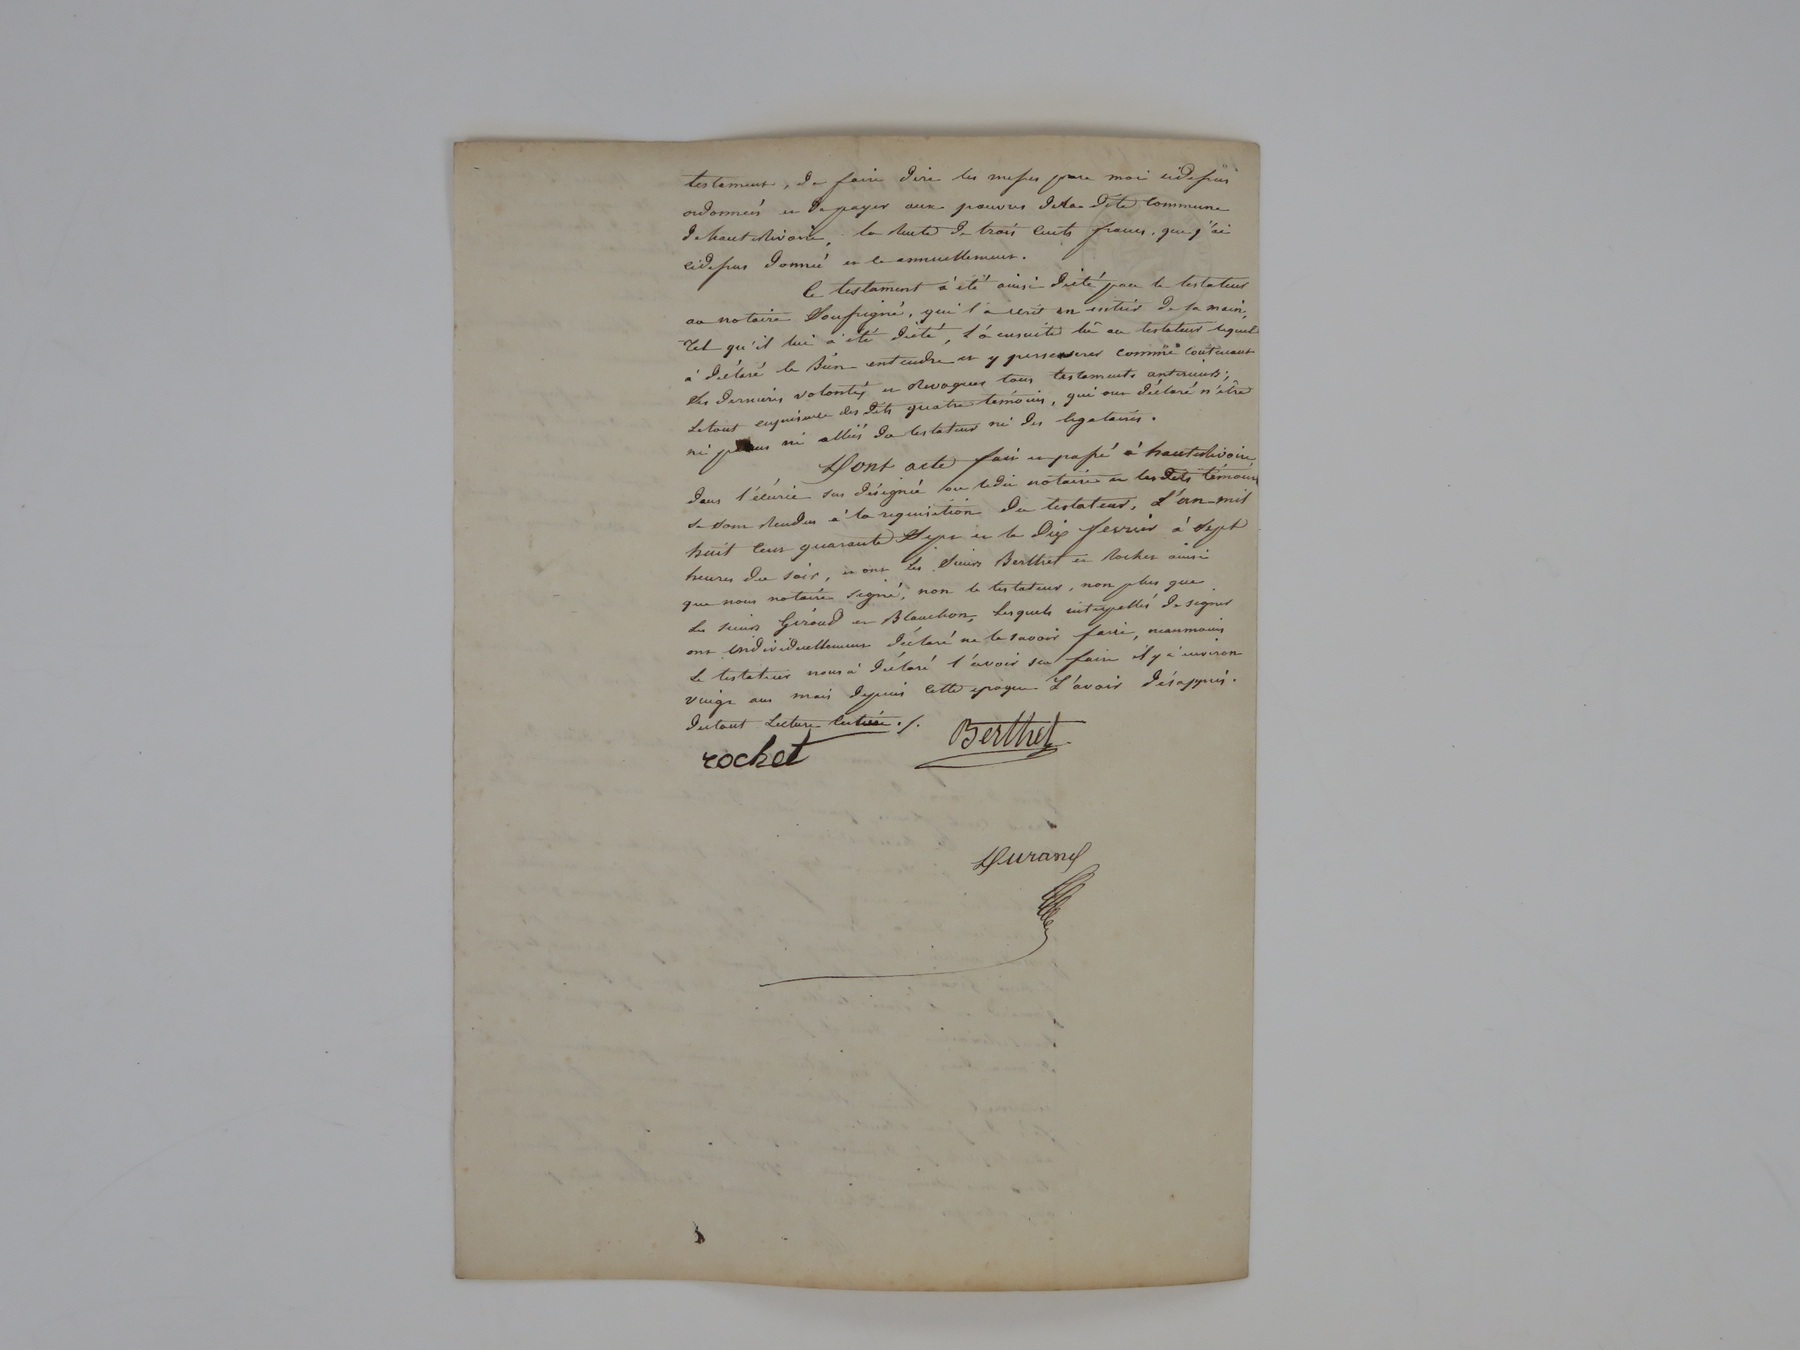 testament, de faire dire les messes par moi cidessus
ordonnées et de payer aux pauvres de la dite Commune
de hauterivoire, la rente de trois cents francs, que j'ai
cidessus donnée et le annuellement.
Ce testament a été ainsi dicté par le testateur
au notaire soussigné, qui l'a écrit en entier de sa main,
tel qu'il lui a été dicté, l'a ensuite lu au testateur lequel
a déclaré le bien entendre et y perseverer comme contenant
ses dernières volontés et révoquer tous testaments antérieurs;
le tout en présence des dits quatre témoins, qui ont déclaré n'être
ni parens ni alliés du testateur ni des légataires.
Dont acte fait et passé à hauterivoire
dans l'écurie sus désignée où ledit notaire et les dits témoins
se sont rendus à la requisition du testateur, L'an mil
huit cent quarante Sept et le Dix fevrier à Sept
heures du soir, et ont les sieurs Berthet et Rochet ainsi
que nous notaire signé, non le testateur, non plus que
les sieurs Géroud et Blanchon, lesquels interpellés de signer
ont individuellement déclaré ne le savoir faire, néanmoins
le testateur nous a déclaré l'avoir su faire il y a environ
vingt ans mais depuis cette époque l'avoir désappris.
du tout Lecture entière ./.
rochet Berthet
Durand